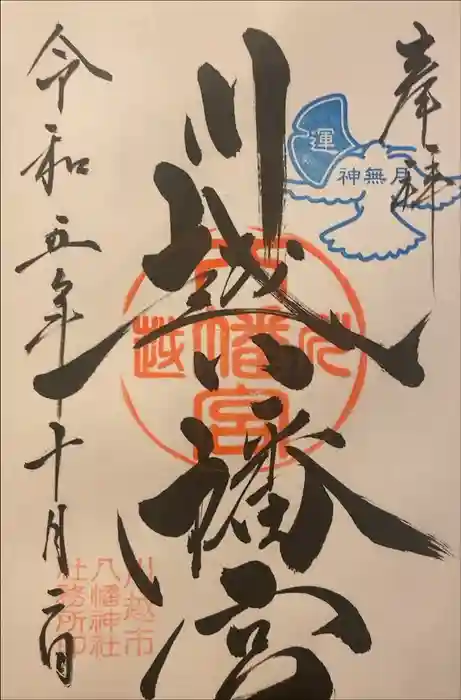 奉拝
運
神無月
川越八幡宮
川越
八幡宮
令和五年十月二日
川越市
八幡神社
社務所印